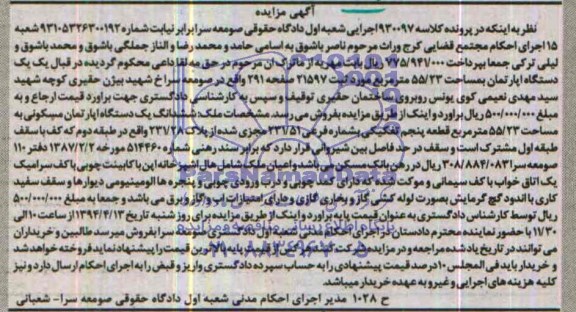 آگهی مزایده
نظر به اینکه در پرونده کلاسه ۹۳۰۰۹۷ اجرایی شعبه اول دادگاه حقوقی صومعه سرا برابر نیابت شماره ۹۳۱۰۵۳۲۶۳۰۰۱۹۲ شعبه
۱۵ اجرای احکام مجتمع قضایی کرج وراث مرحوم ناصر باشوق به اسامی حامد و محمد رضا و الناز جملگی باشوق و محمد باشوق و
لیلی ترکی جمعا بپرداخت ۷۷۵/۹۴۱/۰۰۰ ریال از ماترک آن مرحوم در حق مه لقا ادعائی محکوم گردیده در قبال یک یک
دستگاه اپارتمان بمساحت ۵۵/۲۳ متر مربع مورد ثبت ۲۱۵۹۷ صفحه ۲۹۱ واقع در صومعه سرا خ شهید بیژن حقیری کوچه شهید
سید مهدی نعیمی کوی یونس روبروی ساختمان حقیری توقیف و سپس به کارشناسی دادگستری جهت برآورد قیمت ارجاع و به
مبلغ ۵۰۰/۰۰۰/۰۰۰ ریال برآورد و اینک از طریق مزایده بفروش می رسد. مشخصات ملک ششدانگ یک دستگاه اپارتمان مسکونی به
مساحت ۵۵/۲۳ متر مربع قطعه پنجم تفکیکی بشماره فرعی ۲۳۱/۵۱ مجزی شده از پلاک ۲۳۱/۲۸ واقع در طبقه دوم که کف با سقف
طبقه اول مشترک است و سقف در حد فاصل بین شیروانی قرار دارد که برابر سند رهنی شماره ۵۱۴۴۶۰ مورخه ۱۳۸۷/۲/۲ دفتر ۱۱۰
صومعه سرا ۳۰۸/۸۸۴/۰۸۳ ریال در رهن بانک مسکن می باشد و اعیان ملک شامل هال اشپزخانه اپن با کابینت چوبی با کف سرامیک
یک اتاق خواب با کف سیمانی و موکت شده که دارای کمد چوبی و درب ورودی چوبی و پنجره ها الومینیومی دیوارها و سقف سفید
کاری با اندود گچ گرمایش بصورت لوله کشی گاز و بخاری گازی و دارای امتیاز اب و گاز و برق می باشد و جمعا به مبلغ ۵۰۰/۰۰۰/۰۰۰
ریال توسط کارشناس دادگستری به عنوان قیمت پایه برآورد و اینک از طریق مزایده برای روز شنبه تاریخ ۱۳۹۴/۴/۱۳ از ساعت ۱۰ الی
۱۱/۳۰ با حضور نماینده محترم دادستان در دفتر اجرای احکام مدنی شعبه اول دادگاه حقوقی صومعه سرا بفروش میرسد طالبین و خریداران
می توانند در تاریخ یاد شده مراجعه و در مزایده شرکت کنند کسانیکه از قیمت پایه بالاترین قیمت را پیشنهاد نماید فروخته خواهد شد
و خریدار باید فی المجلس ۱۰ درصد قیمت پیشنهادی را به حساب سپرده دادگستری واریز و قبض را به اجرای احکام ارسال دارد و نیز
کلیه هزینه های اجرایی و غیره به عهده خریدار میباشد.
ح ۱۰۲۸ مدیر اجرای احکام مدنی شعبه اول دادگاه حقوقی صومعه سرا- شعبانی